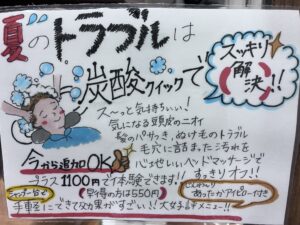 夏のトラブルは
炭酸クイックで
スッキリ
解決!!
ス〜っと気持ちいい!
気になる頭皮のニオイ
髪のパサつき、ぬけ毛のトラブル
毛穴に詰まった汚れを
心地いいヘッドマッサージで
すっきりオフ!!
今から追加OK
プラス1100円で体験できます!!
(早得の方は550円)
じんわり
あったかアイピロー付き
シャンプー台で
手軽にできて効果がすごい!!大好評メニュー!!